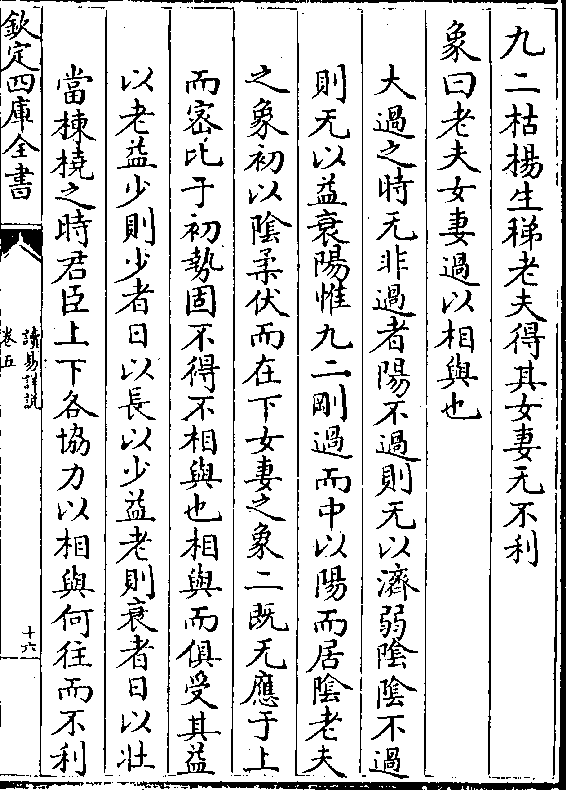 九二枯楊生稊老夫得其女妻无不利
象曰老夫女妻過以相與也
大過之時无非過者陽不過則无以濟弱陰陰不過
則无以益衰陽惟九二剛過而中以陽而居陰老夫
之象初以陰柔伏而在下女妻之象二既无應于上
而宻比于初勢固不得不相與也相與而俱受其益
以老益少則少者日以長以少益老則衰者日以壯
當棟橈之時君臣上下各協力以相與何往而不利
欽定四庫全書
讀易詳説
卷五
十六